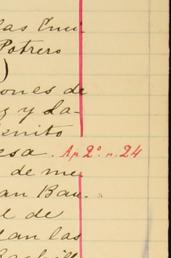 las Enci
Potrero
)
ones de
y La-
ienito
esa. Ap 2º. n. 24
de me
an Bau.
l de
dan las